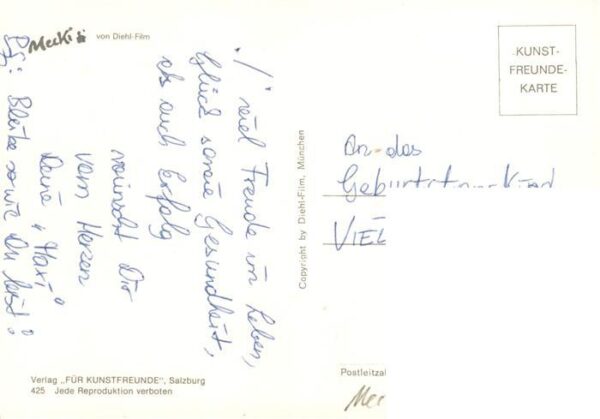 Mecki von Diehl-Film
./. viel Freude im Leben,
Glück sowie Gesundheit,
als auch Erfolg
wünscht Dir
vom Herzen
Deine "Maxi"
Ps: Bleibe so wie Du bist!
Verlag „FÜR KUNSTFREUNDE", Salzburg
425 Jede Reproduktion verboten
Copyright by Diehl-Film, München
KUNST-
FREUNDE-
KARTE
An das
VIEL
Postleitzal